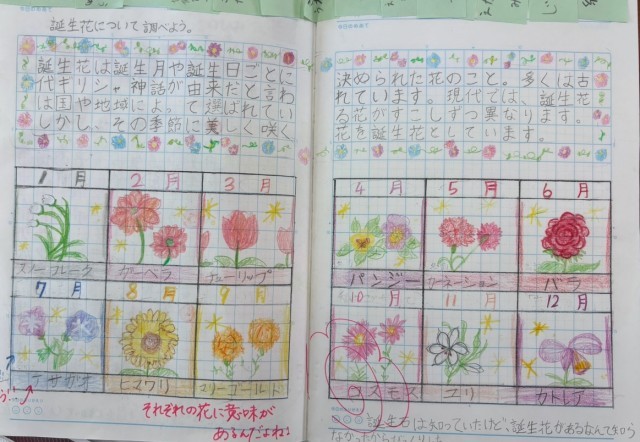 誕生花について調べよう。
誕生花は誕生月や誕生日ごとに
代ギリシャ神話が由来だと言わ
は国や地域によって選ばれてい
しかし、その季節に美しく咲く
決められた花のこと。多くは古
れています。現代では、誕生花
る花がすこしずつ異なります。
花を誕生花としています。
1月 2月 3月
スノーフレーク ガーベラ チューリップ
7月 8月 9月
アサガオ ヒマワリ マリーゴールド
それぞれの花に意味が
あるんだよね!
4月 5月 6月
パンジー カーネーション バラ
10月 11月 12月
コスモス ユリ カトレア
誕生石は知っていたけど、誕生花があるなんて知ら
なかったから